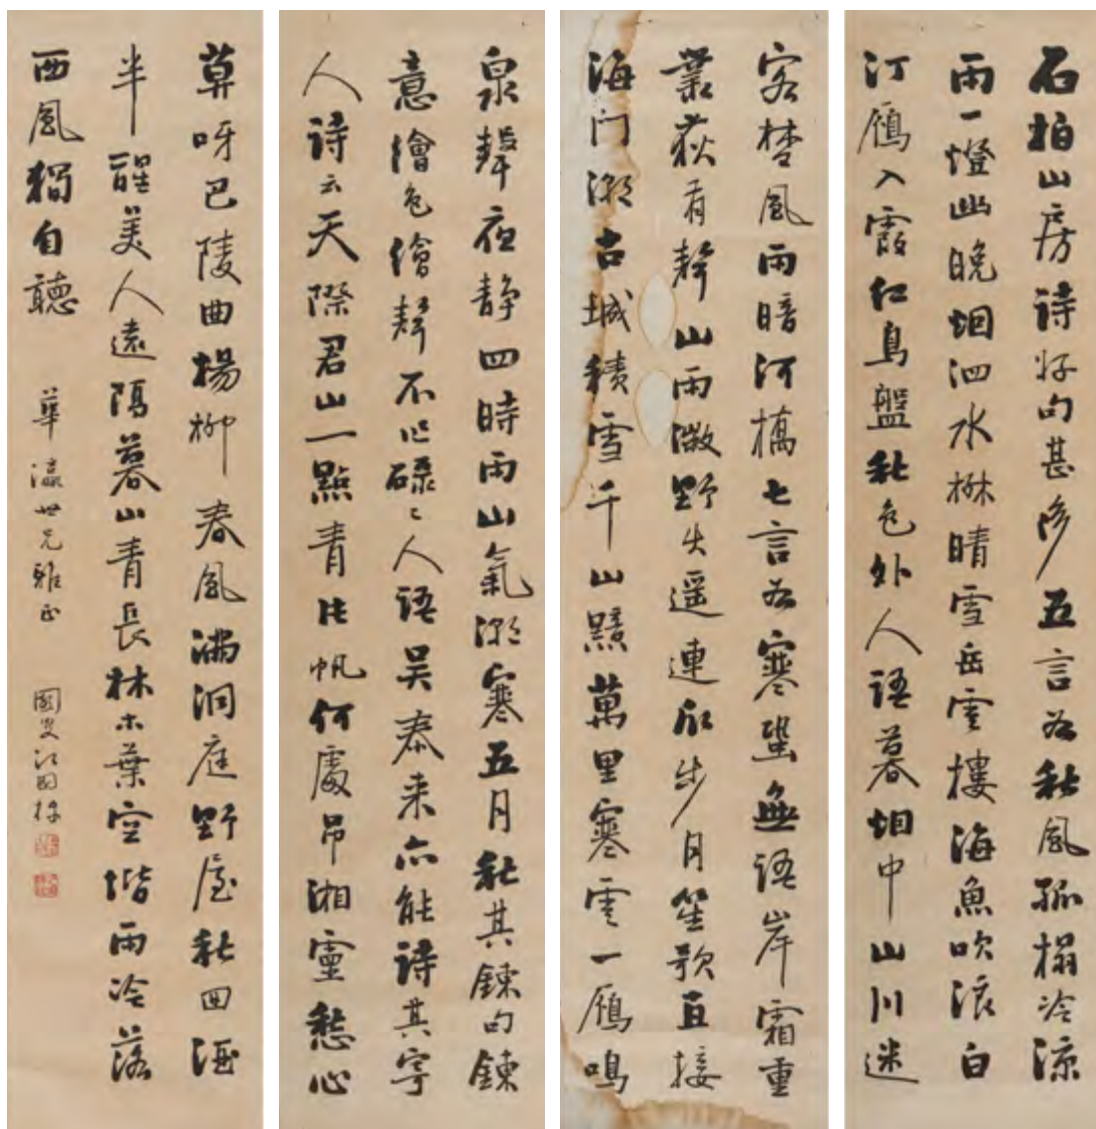 石柏山房詩好句甚多五言如秋風孤榻冷涼
雨一燈幽晚烟泗水楙晴雪岳雲樓海魚吹浪白
汀雁入霞紅鳥盤秋色外人語暮烟中山川迷
客棹風雨暗河橋七言如寒蛩無語岸霜重
叢荻有聲山雨微野步遥連水步月笙歌且接
海门潮古城積雪千山黯萬里寒雲一雁鳴
泉聲夜静四時雨山氣潮寒五月秋其鍊句鍊
意繪色繪聲不作碌々人語吴泰来亦能詩其寄
人詩云天際君山一點青片帆何處吊湘靈愁心
莫唱巴陵曲楊柳春風满洞庭野店秋回酒
半醒美人遠隔暮山青長林木葉空階雨冷落
西風獨自聽
華瀛世兄雅正